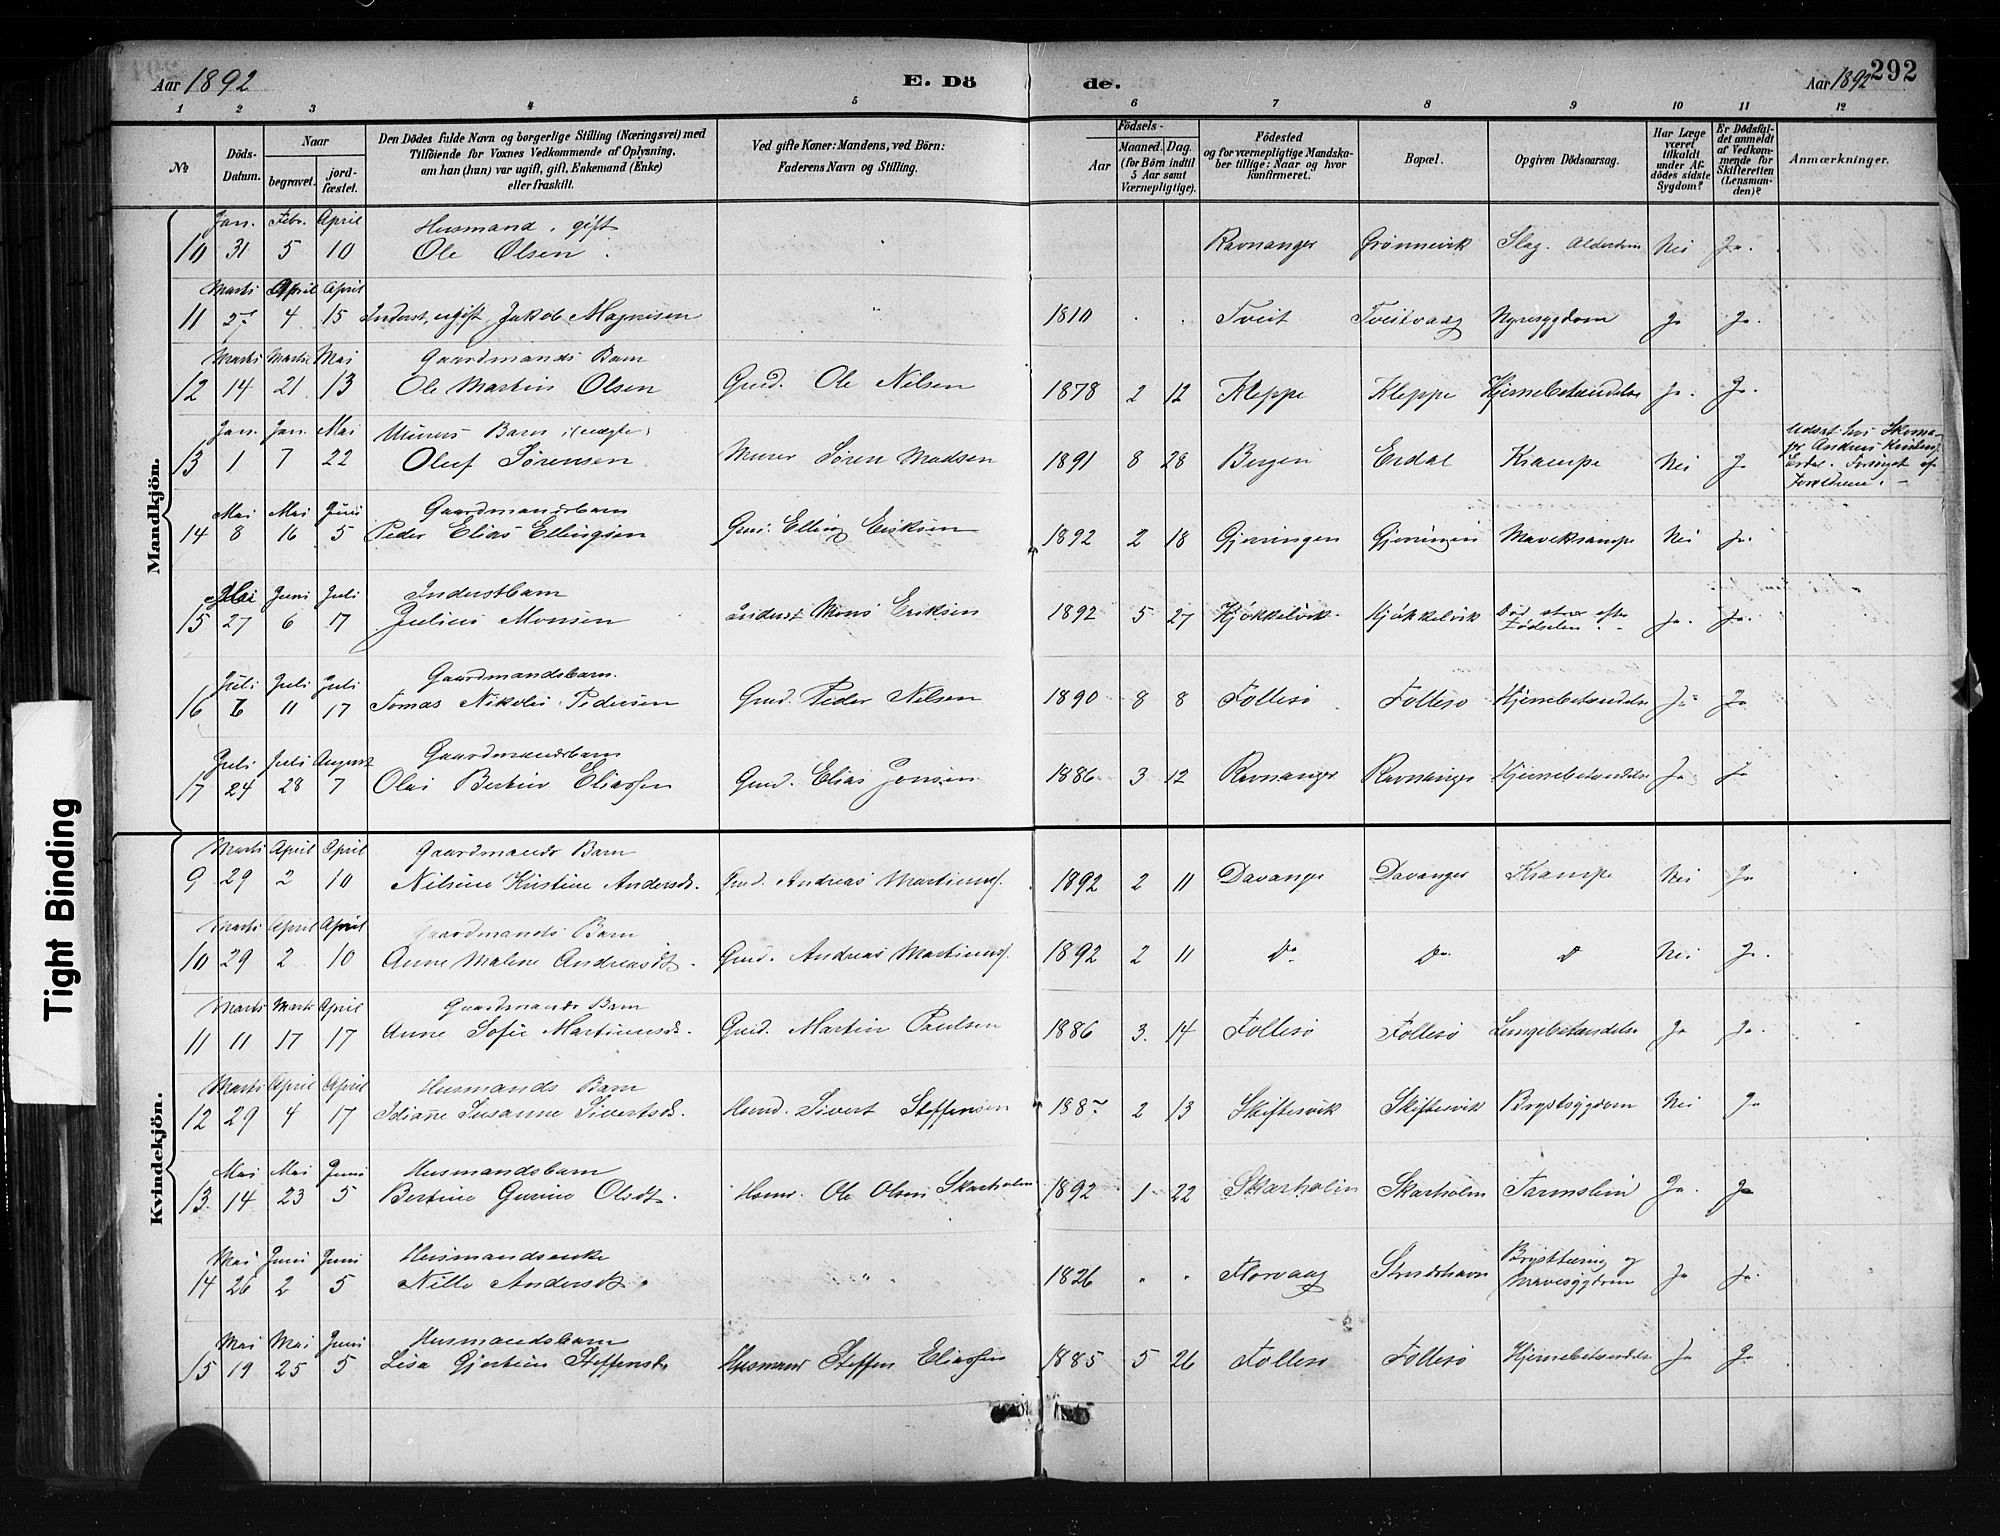 Aar 1892 E. Dö de. Aar 1892 292
1 2 3 4 5 6 7 8 9 10 11 12
№ Döds-Datum. Naar begravet. jord-fæstet. Den Dödes fulde Navn og borgerlige Stilling (Næringsvei) med Tilföiende for Voxnes Vedkommende af Oplysning, om han (hun) var ugift, gift, Enkemand (Enke) eller fraskilt. Ved gifte Koner: Mandens, ved Börn: Faderens Navn og Stilling. Födsels- Aar Maaned. Dag. (for Börn indtil 5 Aar samt Værnepligtige). Födested og for værnepligtige Mandskaber tillige: Naar og hvor konfirmeret. Bopæl. Opgiven Dödsaarsag. Har Læge været tilkaldt under Afdödes sidste Sygdom? Er Dödsfaldet anmeldt af Vedkommende for Skifteretten (Lensmanden)? Anmærkninger.
Mandkjön.
Jan. Febr. April Husmand, gift
10 31 5 10 Ole Olsen Ravnanger Grønnevik Slag. Alderdom Nei Ja.
Marts April April
11 27 4 15 Inderst, ugift Jakob Magnisen 1810 Tveit Tveitvaag Nyresygdom Ja Ja.
Marts Marts Mai Gaardmands Barn
12 14 21 13 Ole Martin Olsen Gmd. Ole Nilsen 1878 2 12 Kleppe Kleppe Hjernebetændelse Ja. Ja.
Jan. Jan. Mai Murers Barn (uægte)
13 1 7 22 Oluf Sørensen Murer Søren Madsen 1891 8 28 Bergen Erdal Krampe Nei Ja
Udsat hos Skoma-
Andreas Kristens.
Erdal. Forsørget af
Forældrene.
Mai Mai Juni Gaardmandsbarn
14 8 16 5 Peder Elias Ellingsen Gmd. Elling Eriksen 1892 2 18 Gjerningen Gjerningen Mavekrampe Nei Ja.
Mai Juni Juli Inderstbarn
15 27 6 17 Julius Monsen Inderst Mons Eriksen 1892 5 27 Kjøkkelvik Kjøkkelvik Død strax efter Fødselen. Ja. Ja.
Juli Juli Juli Gaardmandsbarn.
16 6 11 17 Tomas Nikolai Pedersen Gmd. Peder Nilsen 1890 8 8 Follesø Follesø Hjernebetændelse Ja Ja
Juli Juli August Gaardmandsbarn
17 24 28 7 Olai Bertin Eliassen Gmd. Elias Jonsen 1886 3 12 Ravnanger Ravnanger Hjernebetændelse Ja. Ja
Kvindekjön.
Marts April April Gaardmands Barn
9 29 2 10 Nilsine Kristine Andersdt. Gmd. Andreas Martinus. 1892 2 11 Davanger Davanger Krampe Nei Ja
Marts April April Gaardmands Barn
10 29 2 10 Anne Malene Andreasdt. Gmd. Andreas Martinus. 1892 2 11 Do Do. D Nei Ja.
Marts Marts April Gaardmands Barn
11 11 17 17 Anne Sofie Martinusdt. Gmd. Martin Paulsen 1886 3. 14 Follesø Follesø Lungebetændelse Ja Ja.
Marts April April Husmands Barn
12 29 4 17 Idianne Susanne Sivertsdt. Hsmd. Sivert Steffensen 2 13 Skiftesvik Skiftesvik Brystsygdom Nei Ja
Mai Mai Juni Husmandsbarn
13. 14 23 5 Bertine Gurine Olsdt. Hsmd. Ole Olsen Skarholm 1892 1 22 Skarholm Skarholm Tarmslim Ja. Ja
Mai Juni Juni Husmandsenke
14 26 2 5 Nille Andersdt. 1826 " " Florvaag Strudshavn Brysttæring og Mavesygdom Ja Ja.
Mai Mai Juni Husmandsbarn
15 19 25 5 Lisa Gjertine Steffensdt. Husmand Steffen Eliassen 1885 5 26 Follesø Follesø Hjernebetændelse Ja Ja.
Tight Binding